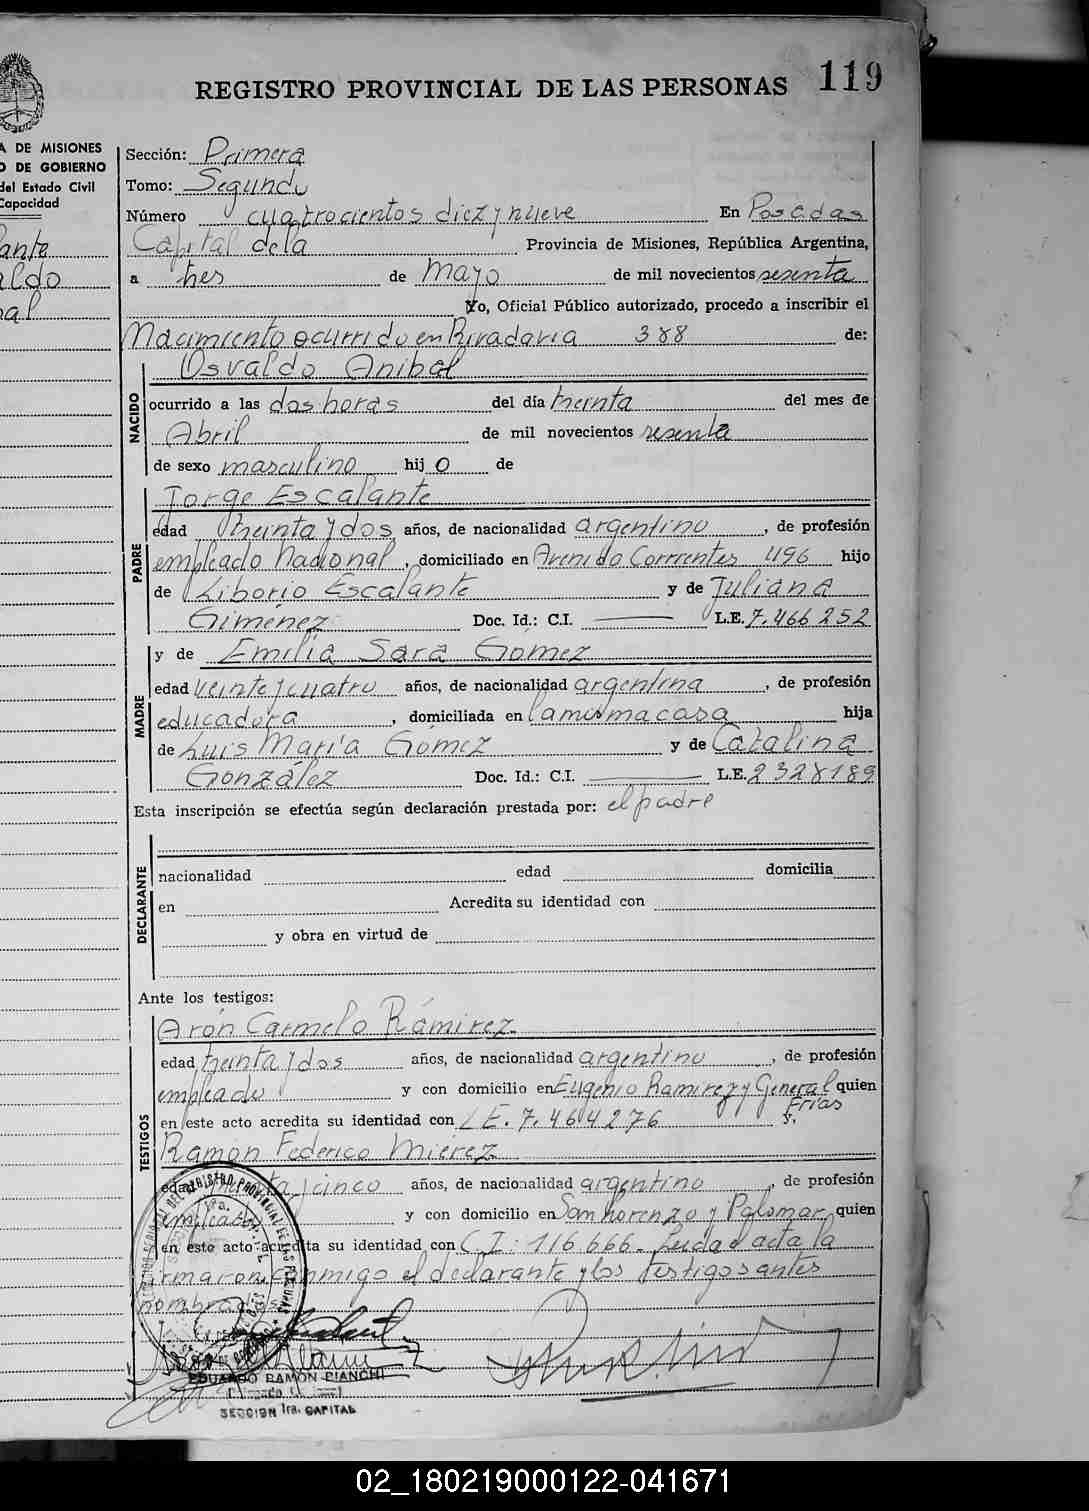 REGISTRO PROVINCIAL DE LAS PERSONAS 119
A DE MISIONES
O DE GOBIERNO
del Estado Civil
Capacidad
ante
aldo
al
Sección: Primera
Tomo: Segundo
Número cuatrocientos diez y nueve En Posadas
Capital de la Provincia de Misiones, República Argentina,
a tres de Mayo de mil novecientos sesenta
Yo, Oficial Público autorizado, procedo a inscribir el
Nacimiento ocurrido en Rivadavia 388 de:
NACIDO
Osvaldo Anibal
ocurrido a las dos horas del día treinta del mes de
Abril de mil novecientos sesenta
de sexo masculino hijo de
PADRE
Jorge Escalante
edad treinta y dos años, de nacionalidad argentino, de profesión
empleado Nacional, domiciliado en Avenida Corrientes 496 hijo
de Liborio Escalante y de Juliana
Giménez Doc. Id.: C.I. L.E. 7.466252
MADRE
y de Emilia Sara Gómez
edad veinte y cuatro años, de nacionalidad argentina, de profesión
educadora, domiciliada en la misma casa hija
de Luis María Gómez y de Catalina
González Doc. Id.: C.I. L.E. 2328189
Esta inscripción se efectúa según declaración prestada por: el padre
DECLARANTE
nacionalidad edad domicilia
en Acredita su identidad con
y obra en virtud de
Ante los testigos:
TESTIGOS
Arón Carmelo Rámirez
edad treinta y dos años, de nacionalidad argentino, de profesión
empleado y con domicilio en Eugenio Ramirez y General quien
Frias
en este acto acredita su identidad con L E. 7.464276 y.
Ramon Federico Mierez
edad y cinco años, de nacionalidad argentino, de profesión
empleado y con domicilio en San Lorenzo y Palomar quien
en este acto acredita su identidad con C I: 116666. Leida el acta la
firmaron conmigo el declarante y los testigos antes
nombrados
EDUARDO RAMON BIANCHI
SECCION 1ra. CAPITAL
02_180219000122-041671